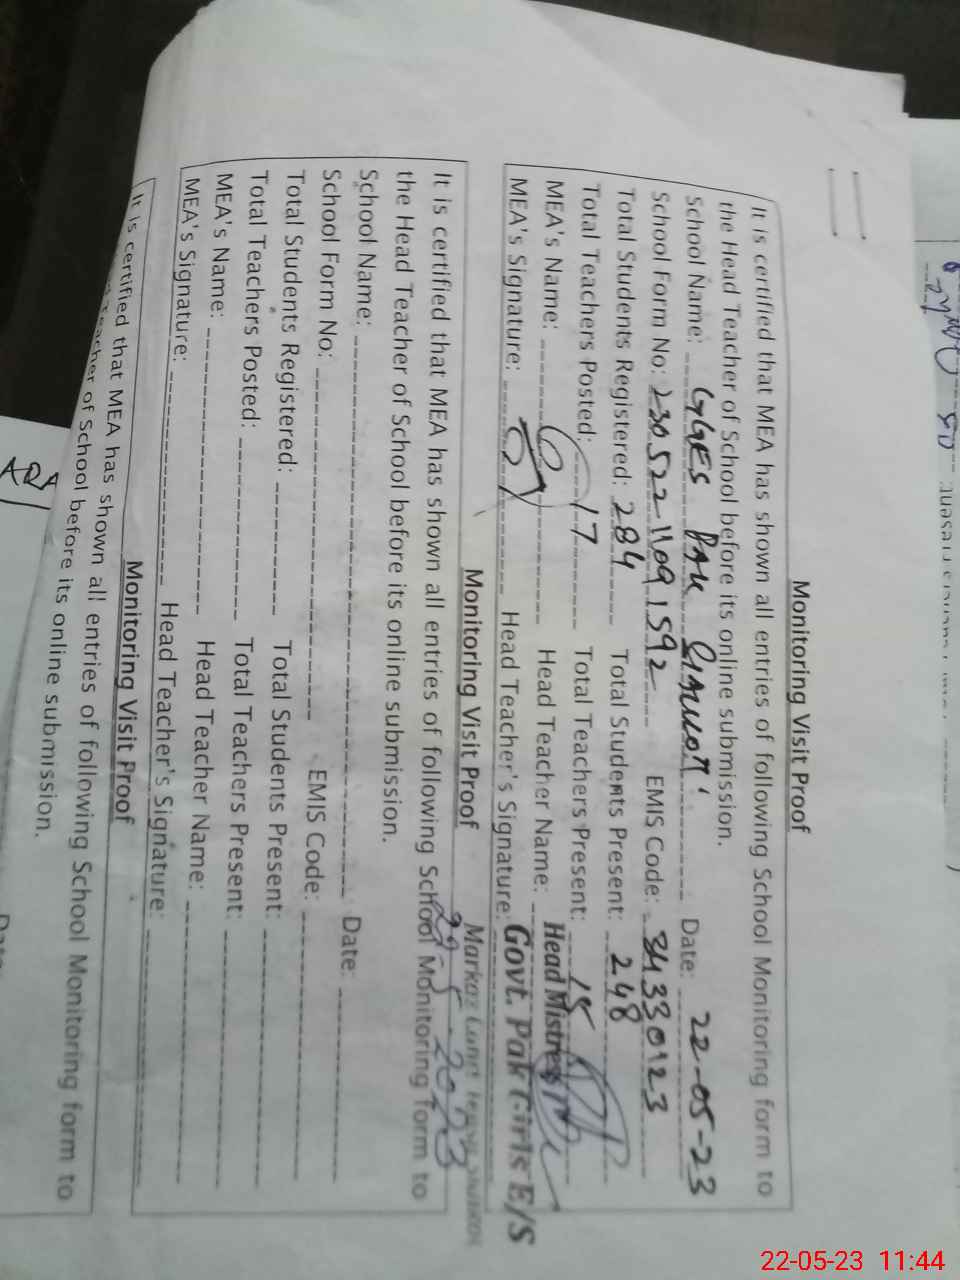 Monitoring Visit Proof
It is certified that MEA has shown all entries of following School Monitoring form to
the Head Teacher of School before its online submission.
School Name: GGES PAK Date: 22-05-23
School Form No: 23052211091592 EMIS Code: 34330123
Total Students Registered: 284 Total Students Present: 248
Total Teachers Posted: 17 Total Teachers Present: 15
MEA's Name: Head Teacher Name: Head Mistress
MEA's Signature: Head Teacher's Signature: Govt. Pak Girls E/S
Monitoring Visit Proof Markaz
It is certified that MEA has shown all entries of following School Monitoring form to
2023
the Head Teacher of School before its online submission.
School Name: Date:
School Form No: EMIS Code:
Total Students Registered: Total Students Present:
Total Teachers Posted: Total Teachers Present:
MEA's Name: Head Teacher Name:
MEA's Signature: Head Teacher's Signature:
Monitoring Visit Proof
It is certified that MEA has shown all entries of following School Monitoring form to
Teacher of School before its online submission.
22-05-23 11:44